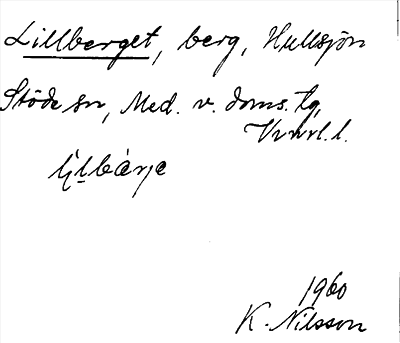 Lillberget, berg, Hullsjön
Stöde sn, Med. v. doms. tg,
Vnrl. l.
Lilbärje
1960
K. Nilsson